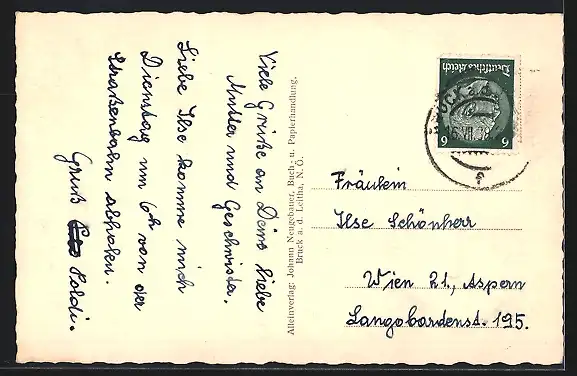 Viele Grüße an Deine liebe
Mutter und Geschwister.
Liebe Ilse komme mich
Dienstag um 6h von der
Straßenbahn abholen.
Gruß Poldi.
Alleinverlag: Johann Neugebauer, Buch- u. Papierhandlung.
Bruck a. d. Leitha, N. Ö.
Deutsches Reich
6 6
Fräulein
Ilse Schönherr
Wien 21., Aspern
Langobardenst. 195.